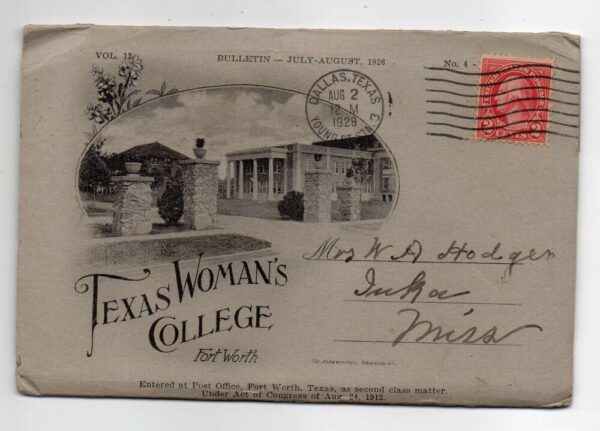 VOL. 12
BULLETIN — JULY-AUGUST, 1926
No. 4
DALLAS, TEXAS
AUG 2
12 M
1928
YOUNG ST.
Mrs W A Hodges
Iuka
Miss
TEXAS WOMAN'S
COLLEGE
Fort Worth
Entered at Post Office, Fort Worth, Texas, as second class matter.
Under Act of Congress of Aug. 24, 1912.